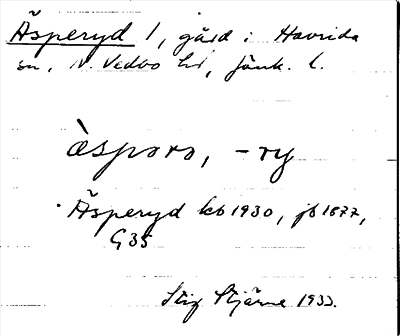 Äsperyd 1, gård i Haurida
sn, N. Vedbo hd, Jönk. l.
àspərə, -ry
Äsperyd kb 1930, jb 1877,
G35
Stig Stjärne 1933.